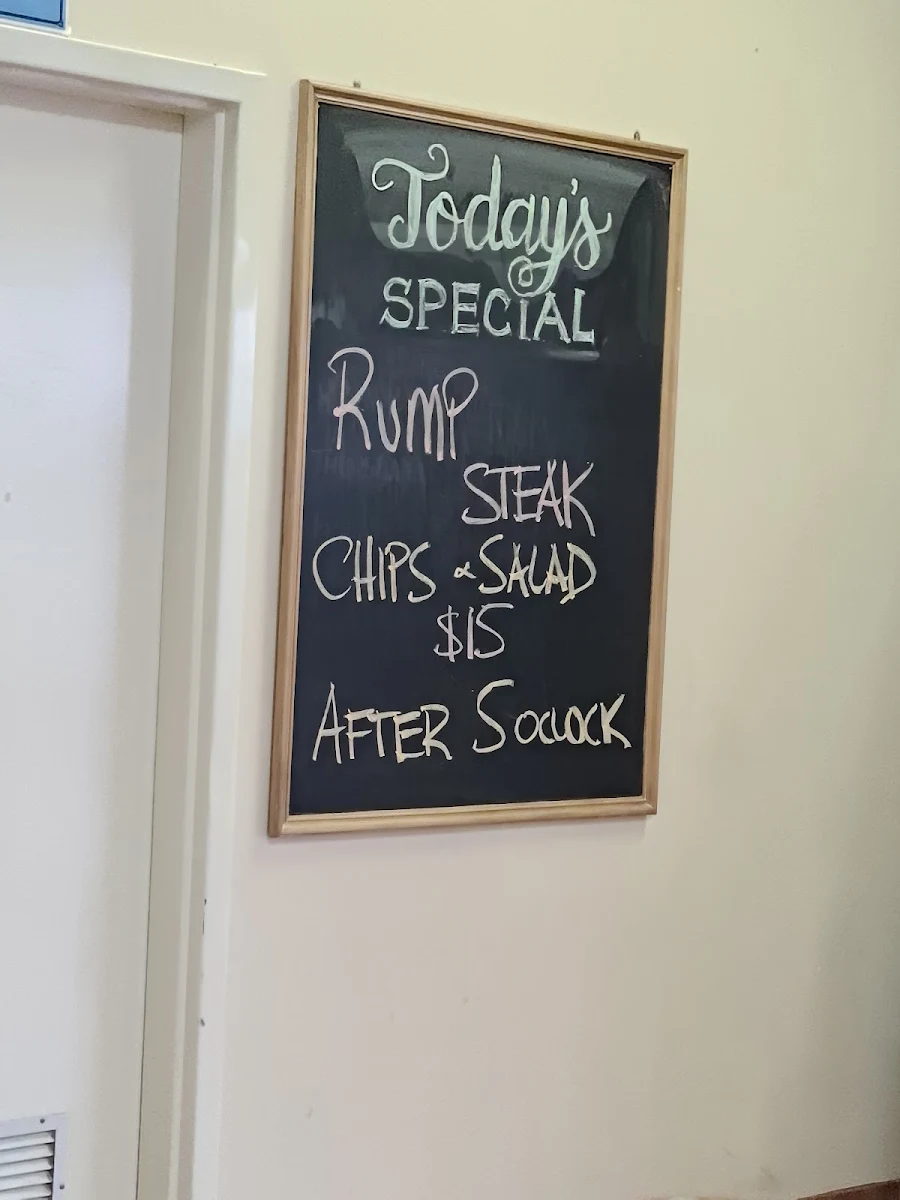 Today's
SPECIAL
RUMP
STEAK
CHIPS & SALAD
$15
AFTER 5 OCLOCK